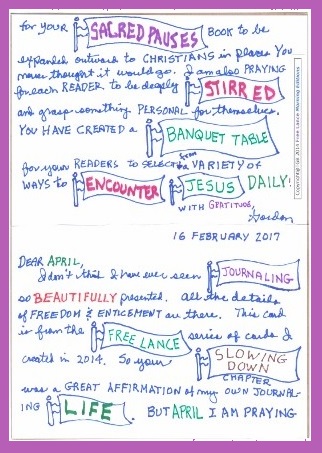 for your SACRED PAUSES BOOK to be
expanded outward to CHRISTIANS in places You
never thought it would go. I am also PRAYING
for each READER to be deeply STIRRED
and grasp something PERSONAL for themselves.
YOU HAVE CREATED A BANQUET TABLE
for your READERS to SELECT from a VARIETY of
WAYS to ENCOUNTER JESUS DAILY!
WITH GRATITUDE,
Gordon
16 FEBRUARY 2017
DEAR APRIL,
I don't think I have ever seen JOURNALING
so BEAUTIFULLY presented. All the details
of FREEDOM & ENTICEMENT are there. This card
is from the FREE LANCE series of cards I
created in 2014. So your SLOWING
DOWN
CHAPTER
was a GREAT AFFIRMATION of my own JOURNAL-
ING LIFE. BUT APRIL I AM PRAYING